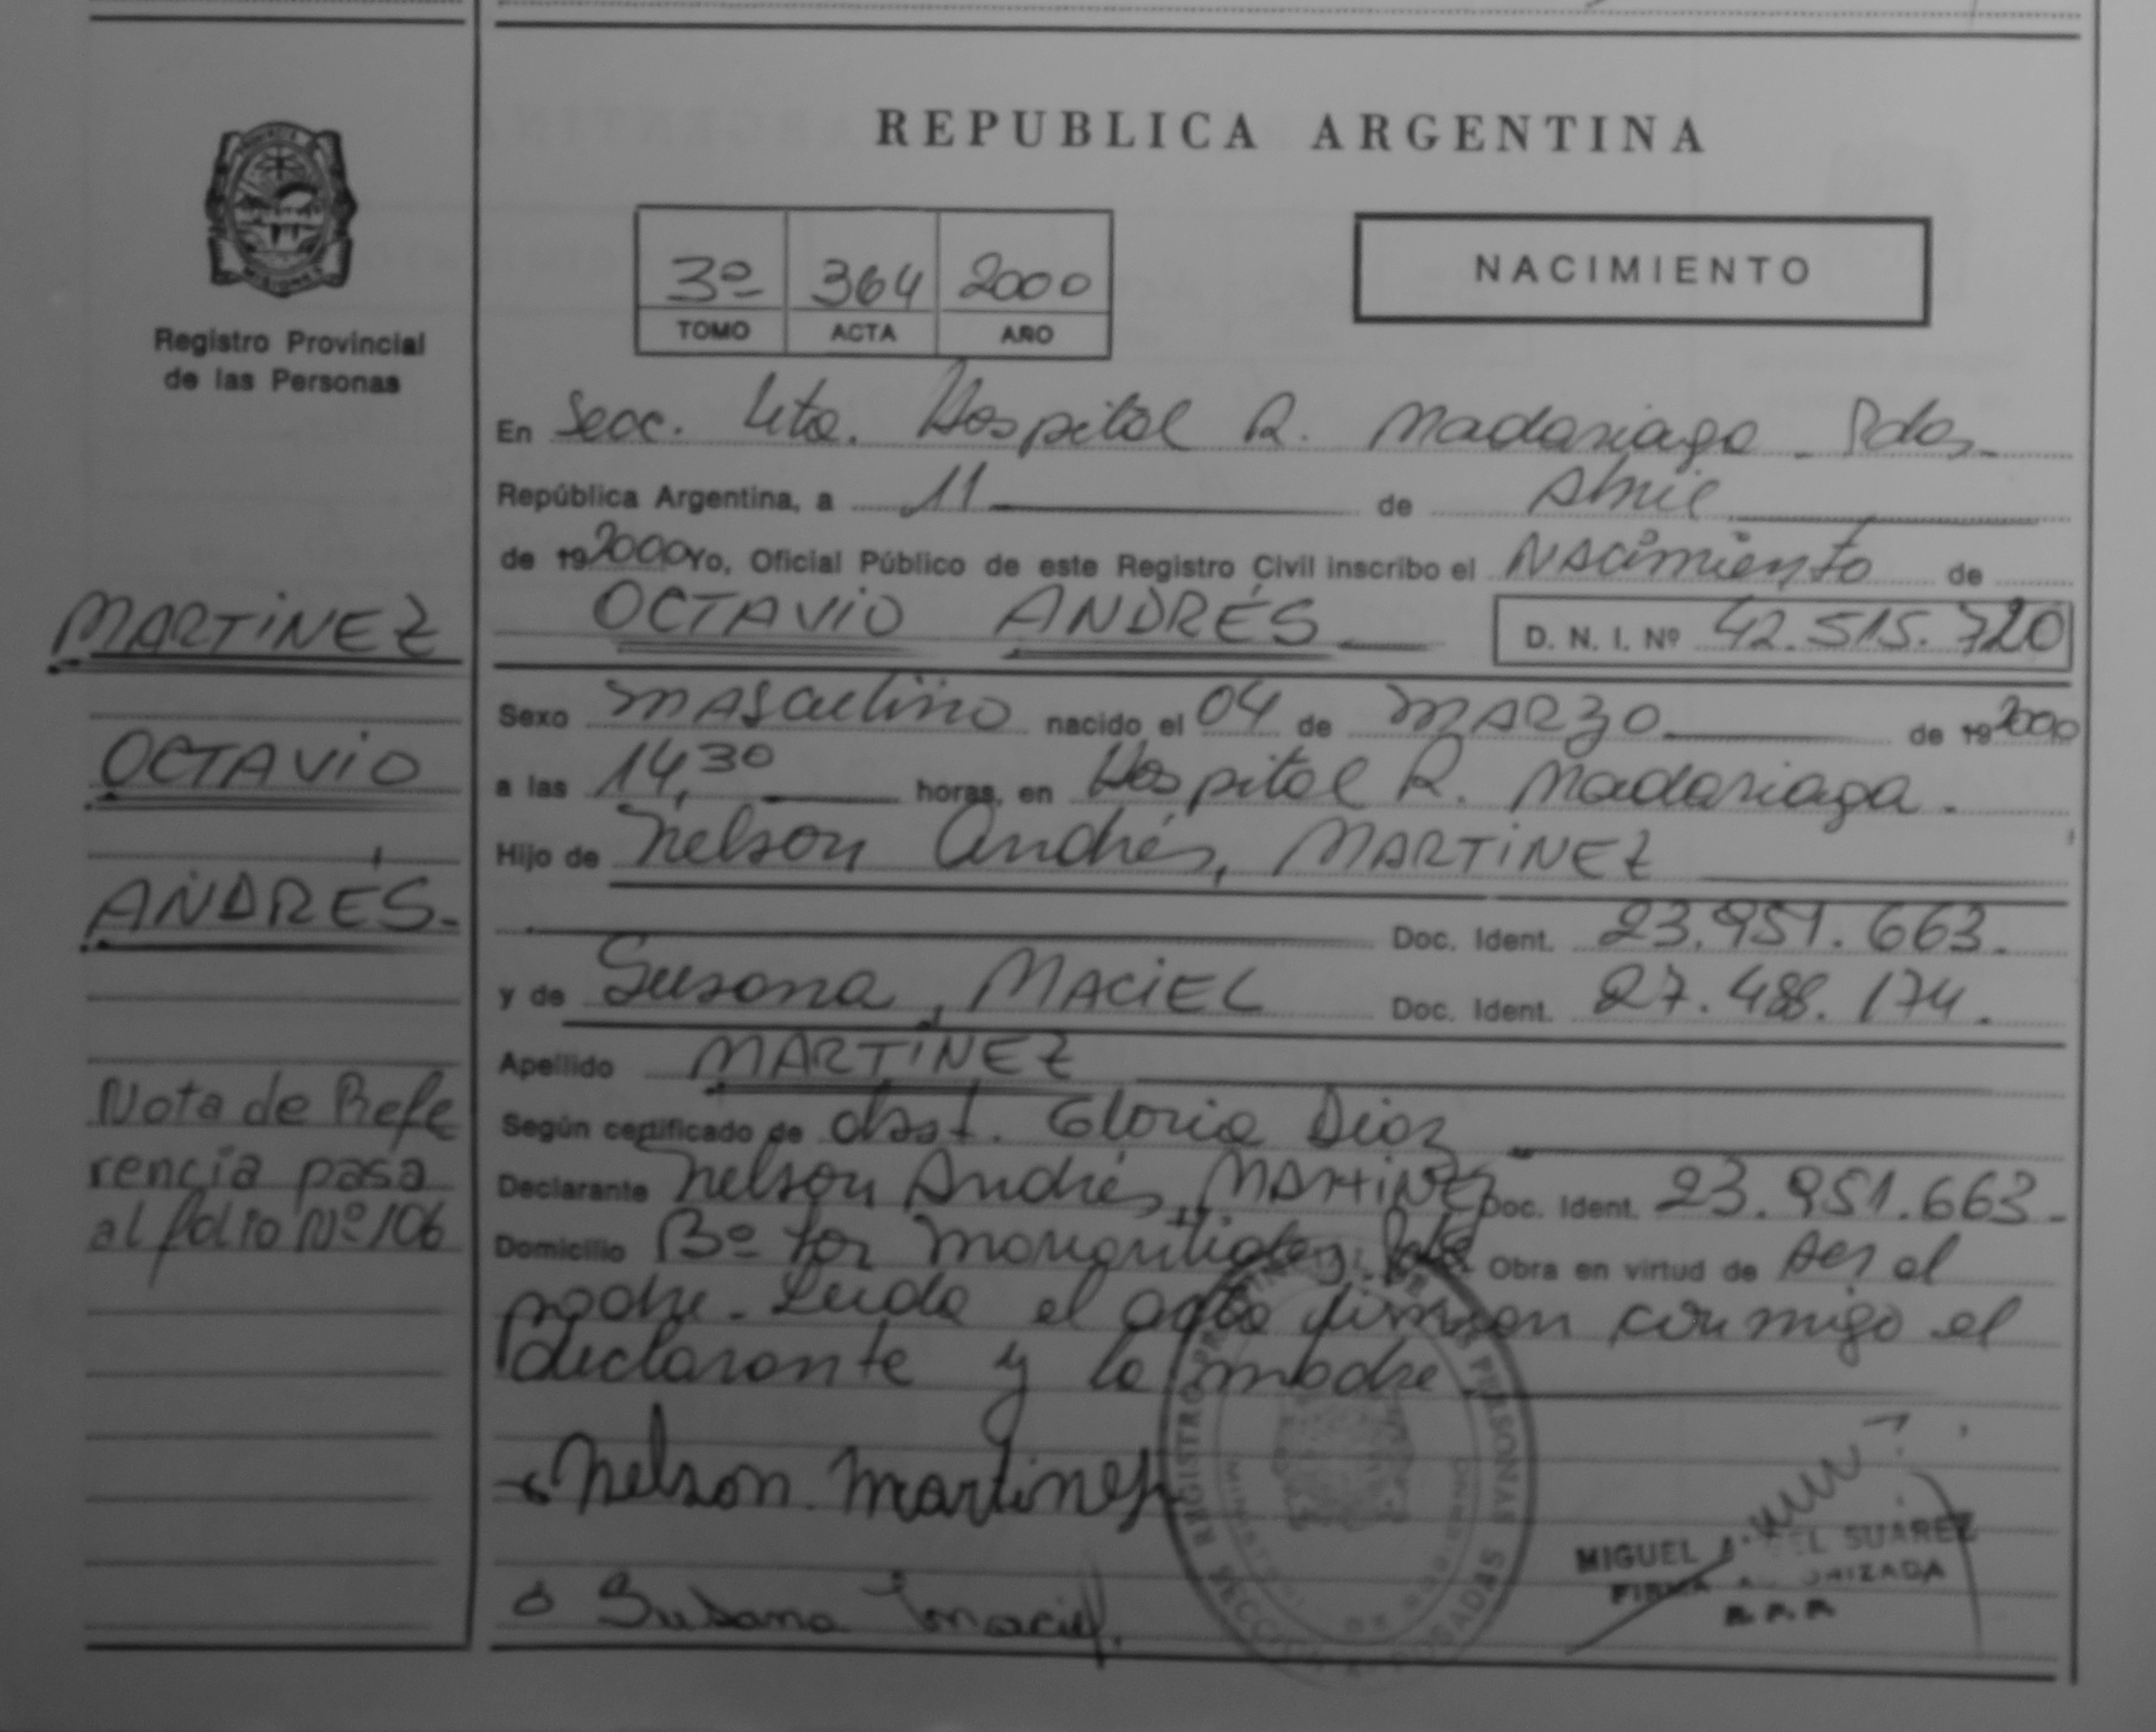 REPUBLICA ARGENTINA
Registro Provincial
de las Personas
3º 364 2000
TOMO ACTA AÑO
NACIMIENTO
En Secc. 4ta. Hospital R. Madariaga - Pdas.
República Argentina, a 11 de Abril
de 192000 Yo, Oficial Público de este Registro Civil inscribo el Nacimiento de
OCTAVIO ANDRÉS D. N. I. Nº 42.515.720
Sexo Masculino nacido el 04 de MARZO de 192000
a las 14,30 horas, en Hospital R. Madariaga.
Hijo de Nelson Andrés, MARTINEZ
Doc. Ident. 23.951.663.
y de Susana, MACIEL Doc. Ident. 27.488.174.
Apellido MARTINEZ
Según certificado de Obst. Gloria Diaz
Declarante Nelson Andrés, MARTINEZ Doc. Ident. 23.951.663-
Domicilio Bº Los Manantiales. Obra en virtud de ser el
padre. Leida el acta firman conmigo el
declarante y la madre
Nelson Martinez
Susana Maciel
MARTINEZ
OCTAVIO
ANDRÉS-
Nota de Refe
rencia pasa
al folio Nº 106
REGISTRO PERSONAS
POSADAS
MIGUEL SUAREZ
FIRMA
R. P. P.